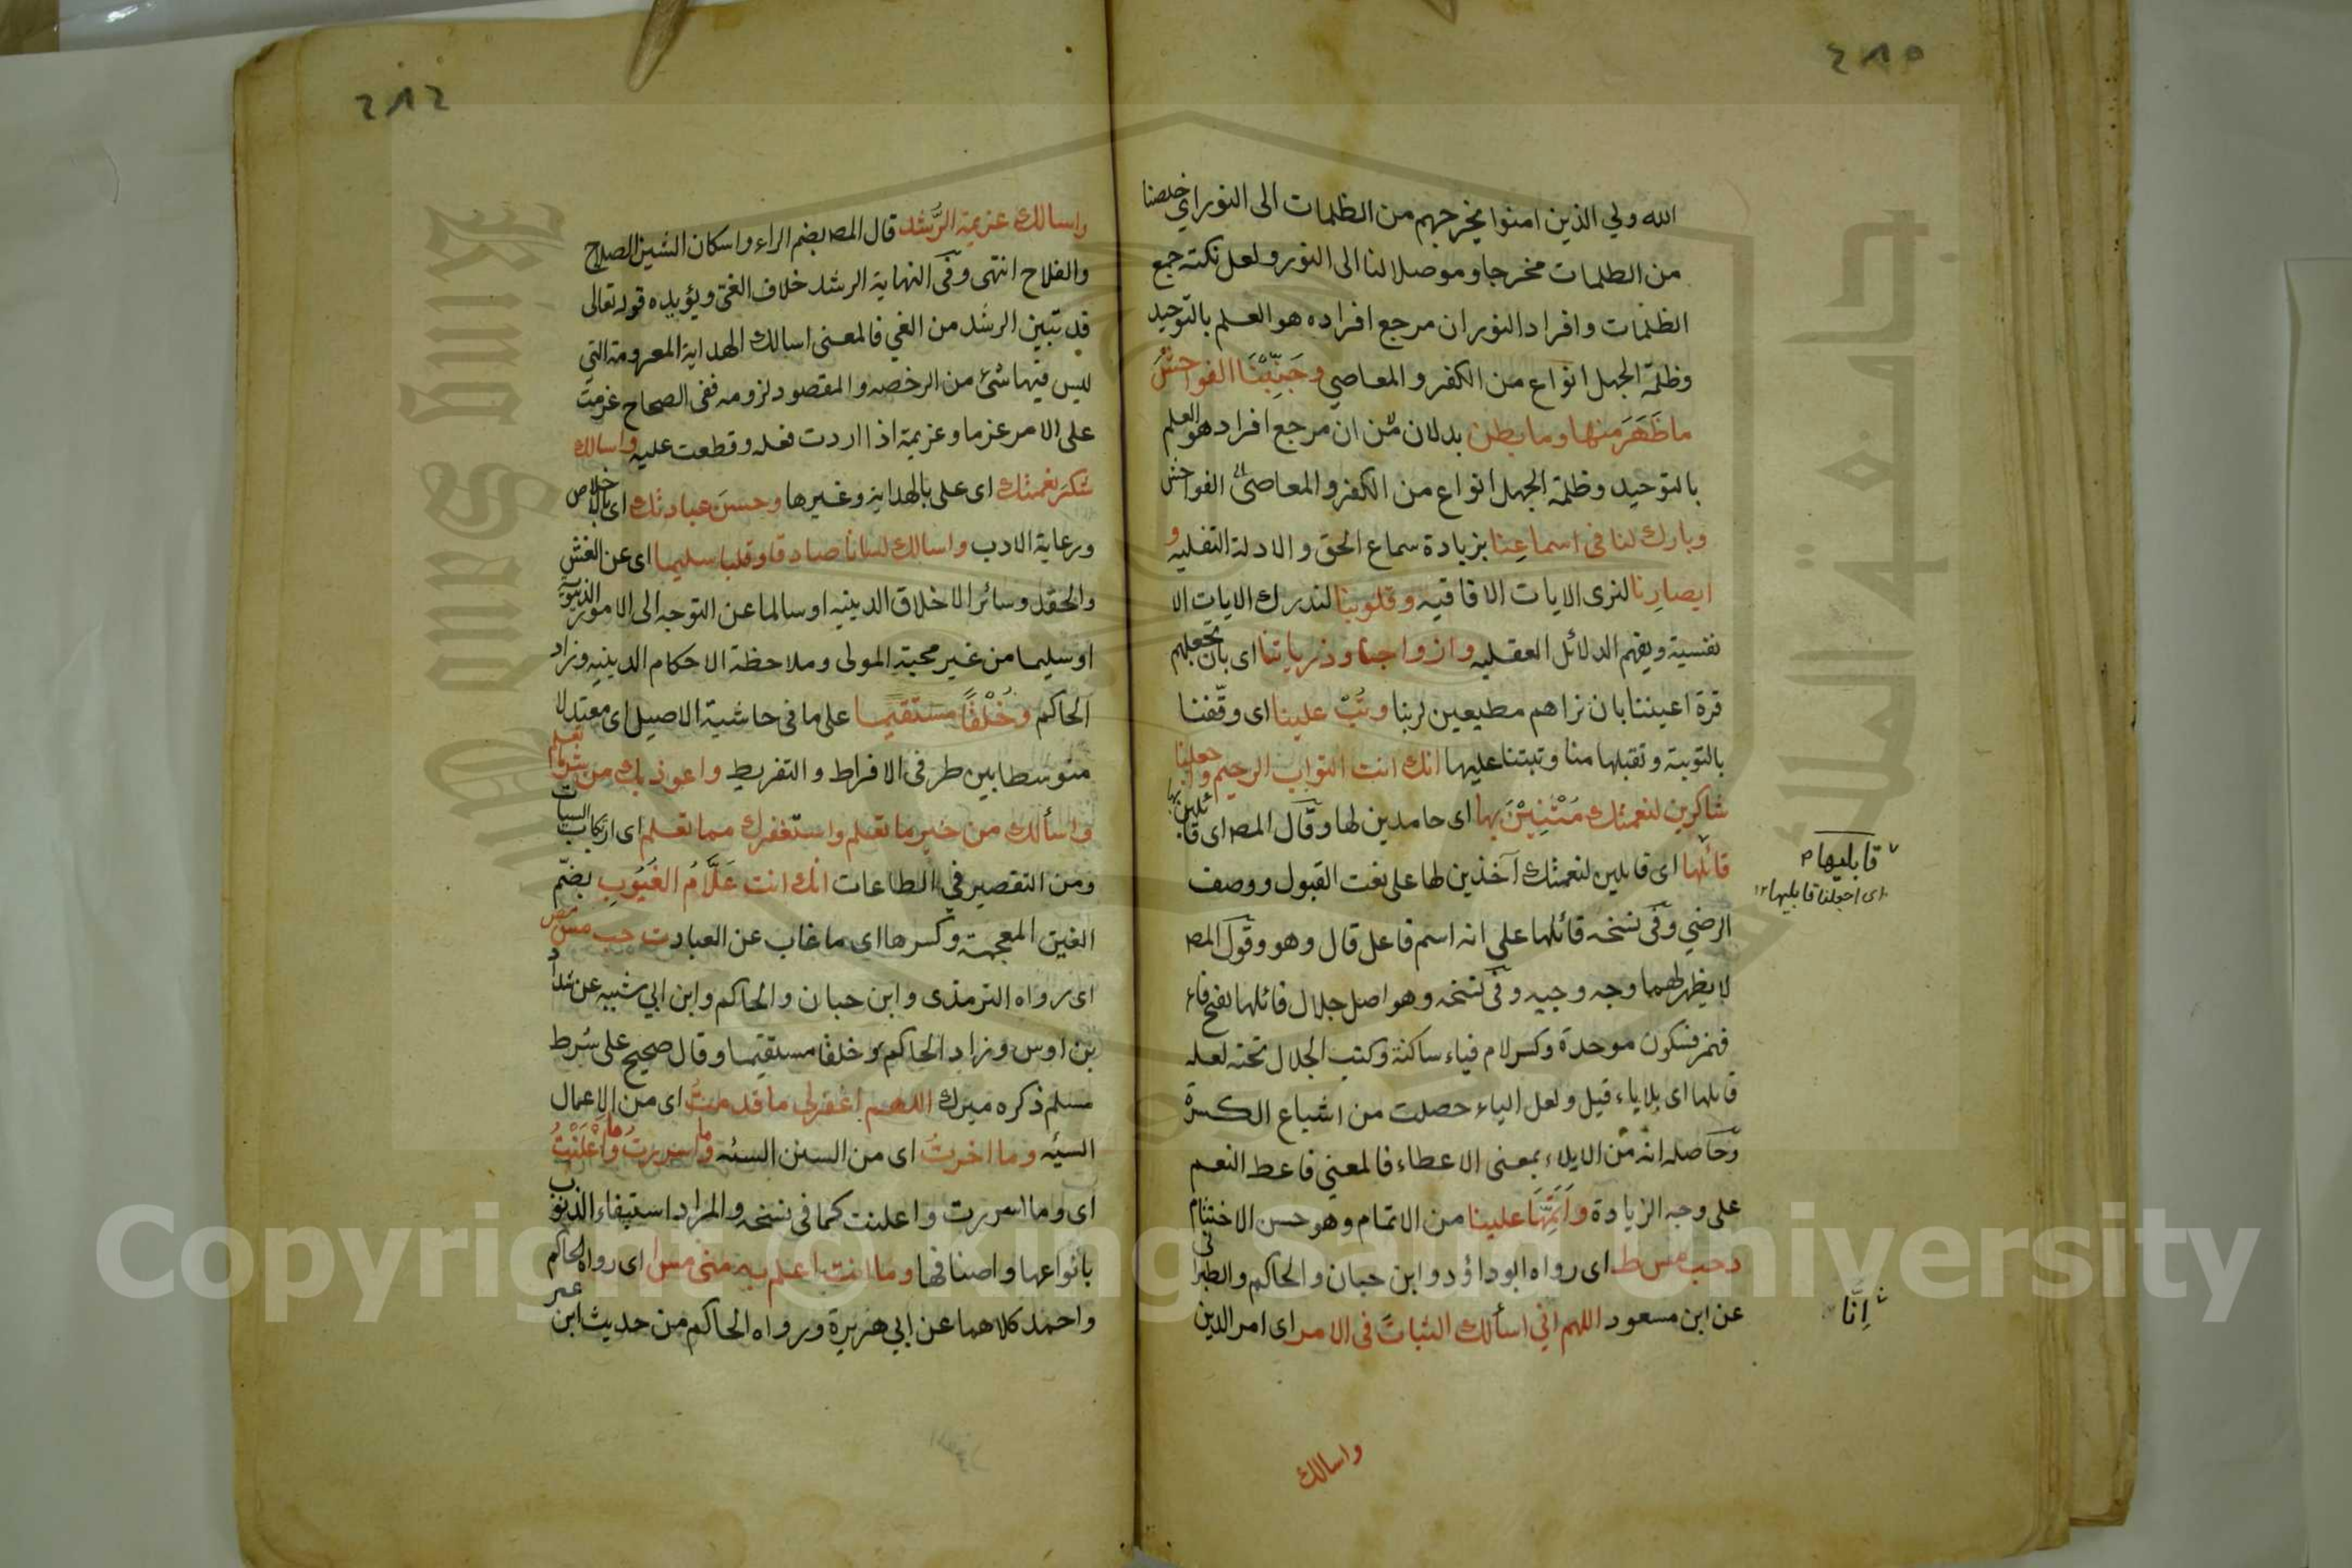 ٤٨٥
الله ولي الذين امنوا يخرجهم من الظلمات الى النور اي خلصنا
من الظلمات مخرجا وموصلا لنا الى النور ولعل نكتة جمع
الظلمات وافراد النور ان مرجع افراده هو العلم بالتوحيد
وظلمة الجهل انواع من الكفر والمعاصي وجَنِّبْنَا الفواحشَ
ما ظَهَرَ منها وما بطن بدلان من ان مرجع افراده هو العلم
بالتوحيد وظلمة الجهل انواع من الكفر والمعاصي الفواحش
وبارك لنا فى اسماعِنا بزيادة سماع الحق والادلة النقليه و
ابصارِنا لنرى الايات الافاقيه وقلوبنا لندرك الايات الا
نفسية ويفهم الدلائل العقليه وازواجنا وذرياتنا اى بان تجعلهم
قرة اعيننا بان نراهم مطيعين لربنا وتُبْ علينا اى وفّقنا
بالتوبة وتقبلها منا وثبتنا عليها انك انت التواب الرحيم واجعلنا
شاكرين لنعمتك مُثْنِيْنَ بها اى حامدين لها وقال المص اى قائلين بها
قائلها اى قابلين لنعمتك آخذين لها على نعت القبول ووصف
الرضي وفى نسخه قائلها على انه اسم فاعل قال وهو وقول المص
لا يظهر لهما وجه وجيه وفى نسخه وهو اصل جلال فائلها بفتح فاء
فهمز فسكون موحدة وكسر لام فياء ساكنة وكتب الجلال تحته لعله
قابلها اى بلا ياء قيل ولعل الياء حصلت من اشباع الكسرة
وحاصله انه من الايلاء بمعنى الاعطاء فالمعني فاعط النعم
على وجه الزيادة وَاَتِمَّهَا علينا من الاتمام وهو حسن الاختتام
د حب مس ط اى رواه ابو داؤد وابن حبان والحاكم والطبرانى
عن ابن مسعود اللهم انى اسألك الثباتَ فى الامر اى امر الدين
قابليها
اى اجعلنا قابليها ١٢
اِنَّا
واسالك
٤٨٤
واسالك عزيمة الرُّشد قال المص بضم الراء واسكان الشين الصلاح
والفلاح انتهى وفى النهاية الرشد خلاف الغيّ ويؤيده قوله تعالى
قد تبين الرشد من الغي فالمعنى اسالك الهداية المعزومة التي
ليس فيها شئ من الرخصه والمقصود لزومه ففى الصحاح عزمت
على الامر عزما وعزيمة اذا اردت فعله وقطعت عليه واسالك
شكرَ نعمتك اى على بالهداية وغيرها وحسنَ عبادتك اى بالاخلاص
ورعاية الادب واسالك لسانا صادقا وقلبا سليما اى عن الغش
والحقد وسائر الاخلاق الدينيه او سالما عن التوجه الى الامور الدنيوية
او سليما من غير محبة المولى وملاحظة الاحكام الدينيه وزاد
الحاكم وخُلْقًا مستقيما على ما فى حاشية الاصيل اى معتدلا
متوسطا بين طرفى الافراط والتفريط واعوذ بك من شر ما تعلم
واسألك من خير ما تعلم واستغفرك مما تعلم اى ارتكاب السيات
ومن التقصير فى الطاعات انك انت عَلَّامُ الغُيُوبِ بضمّ
الغين المعجمة وكسرها اى ما غاب عن العباد ت حب مس مص
اى رواه الترمذى وابن حبان والحاكم وابن ابي شيبه عن شداد
بن اوس وزاد الحاكم وخلقا مستقيما وقال صحيح على شرط
مسلم ذكره ميرك اللهم اغفرلى ما قدمتُ اى من الاعمال
السيّه وما اخرتُ اى من السنن السئه وما اسررتُ وما اَعْلَنْتُ
اى وما اسررت واعلنت كما فى نسخه والمراد استيفاء الذنوب
بانواعها واصنافها وما انت اعلم به منى مس ا اى رواه الحاكم
واحمد كلاهما عن ابي هريرة ورواه الحاكم من حديث ابن عمر
Copyright © King Saud University
King Saud University
جامعة الملك